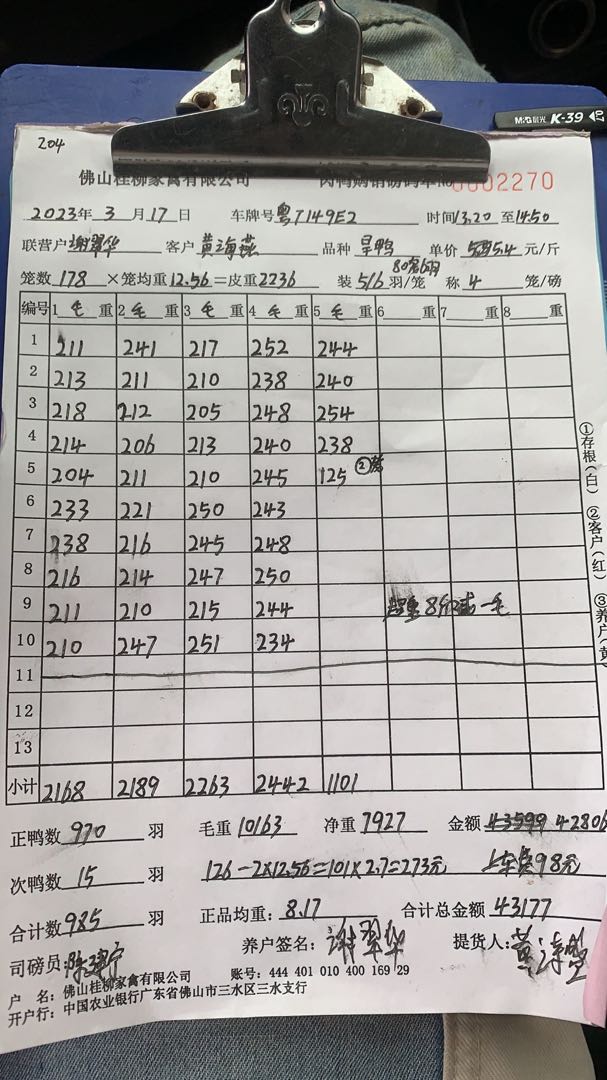 204
M&G 晨光 K-39
佛山桂柳家禽有限公司 0002270
2023年 3 月 17 日 车牌号 粤T149E2 时间 13.20 至 1450
联营户 谢翠华 客户 黄海燕 品种 旱鸭 单价 5.4 元/斤
80笼6羽
笼数 178 ×笼均重 12.56 =皮重 2236 装 5/6 羽/笼 称 4 笼/磅
编号 1 毛 重 2 毛 重 3 毛 重 4 毛 重 5 毛 重 6 重 7 重 8 重
1 211 241 217 252 244
2 213 211 210 238 240
3 218 212 205 248 254
4 214 206 213 240 238
5 204 211 210 245 125 ②笼
6 233 221 250 243
7 238 216 245 248
8 216 214 247 250
9 211 210 215 244 超重8斤减一毛
10 210 247 251 234
11
12
13
小计 2168 2189 2263 2442 1101
正鸭数 970 羽 毛重 10163 净重 7927 金额 43599 42806
次鸭数 15 羽 126-2×12.56=101×2.7=273元 上车费98元
合计数 985 羽 正品均重: 8.17 合计总金额 43177
司磅员: 养户签名: 谢翠华 提货人:
户 名: 佛山桂柳家禽有限公司 账号: 444 401 010 400 169 29
开户行: 中国农业银行广东省佛山市三水区三水支行
①存根(白) ②客户(红) ③养户(黄